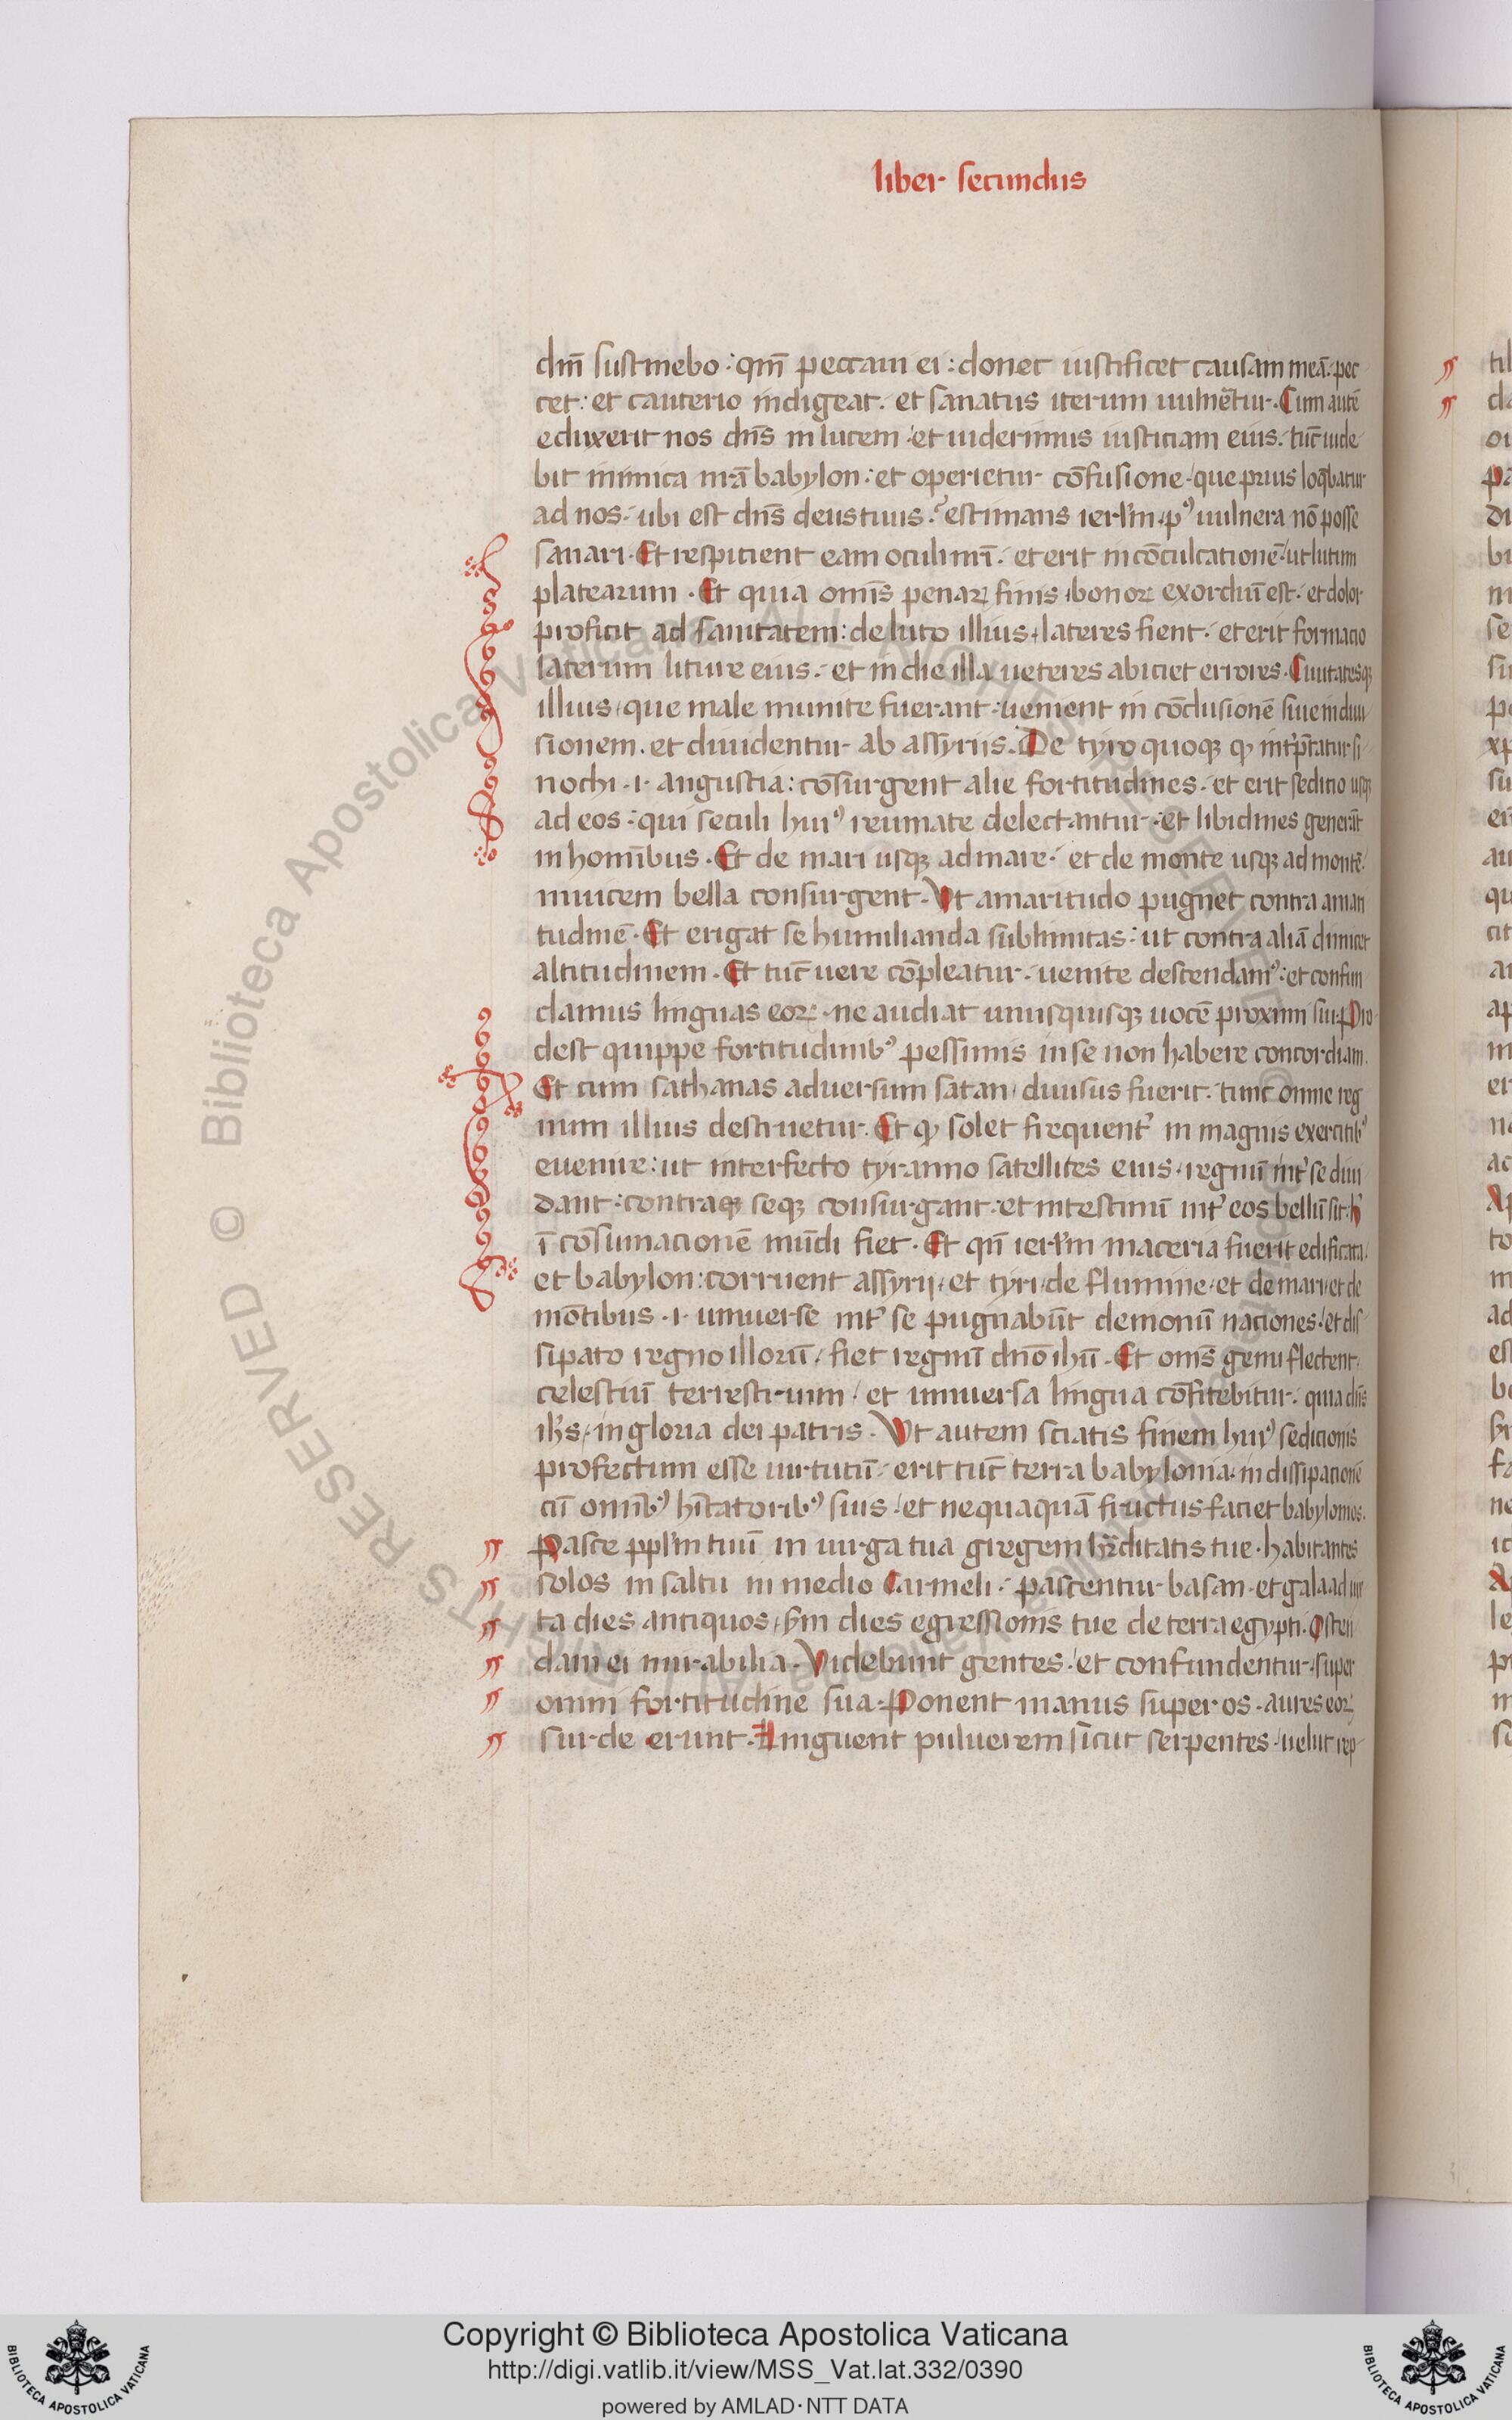 liber secundus
dm̄ sustinebo: qm̄ peccaui ei: donec iustificet causam meā. pec
cet: et cauterio indigeat. et sanatus iterum uulnēt̄ur. Cum autē
eduxerit nos dn̄s in lucem: et uiderimus iusticiam eius. tūc uide
bit inimica nr̄a babylon: et operietur cōfusione, que prius loq̄batur
ad nos. ubi est dn̄s deus tuus? estimans ierlʼm, pꝰ uulnera nō posse
sanari. Et respicient eam oculi mei. et erit in cōculcationē: ut lutum
platearum. Et quia omīs penaꝝ finis, bonoꝝ exorduī est. et dolor
proficit ad sanitatem: de luto illius, lateres fient. et erit formacio
laterum liture eius. et in die illa ueteres abiciet errores. Ciuitatesqꝫ
illius, que male munite fuerant: uenient in cōclusionē siue in diui
sionem. et diuidentur ab assyriis. De tyro quoqꝫ ꝙ int̓p̄tatur si
nochi .i. angustia: cōsurgent alie fortitudines. et erit seditio usqꝫ
ad eos: qui seculi huiꝰ reumate delectantur. et libidines generāt
in homībus. Et de mari usqꝫ ad mare. et de monte usqꝫ ad montē.
inuicem bella consurgent. Vt amaritudo pugnet contra amari
tudinē. Et erigat se humilianda sublimitas: ut contra aliā dimicet
altitudinem. Et tūc uere cōpleatur. uenite descendamꝰ: et confun
damus linguas eoꝝ: ne audiat unusquisqꝫ uocē proximi sui. Pro
dest quippe fortitudinibꝰ pessimis in se non habere concordiam.
Et cum sathanas aduersum satan diuisus fuerit. tunc omne reg
num illius destruetur. Et ꝙ solet frequent̓ in magnis exercitibꝰ
euenire: ut interfecto tyranno satellites eius, regnū int̓ se diui
dant: contraqꝫ seqꝫ consurgant: et intestinū int̓ eos bellū sit: h̓
ī cōsumacionē mūdi fiet. Et qn̄ ierlʼm maceria fuerit edificata.
et babylon: corruent assyrij, et tyri, de flumine, et de mari, et de
mōtibus .i. uniuerse int̓ se pugnabūt demonū naciones, et dis
sipato regno illorū, fiet regnū dn̄o ihū. Et om̄s genu flectent,
celestiū terrestrium, et uniuersa lingua cōfitebitur, quia dn̄s
ih̄s, in gloria dei patris. Vt autem sciatis finem huiꝰ sedicionis
profectum esse uirtutū. erit tūc terra babylonia in dissipacionē
cū omībꝰ h̄itatoribꝰ suis, et nequaquā fructus faciet babylonios.
Pasce pplʼm tuū in uirga tua gregem hr̄editatis tue, habitantes
solos in saltu in medio Carmeli. pascentur basan, et galaad iux
ta dies antiquos, s̄m dies egressionis tue de terra egypti. Osten
dam ei mirabilia. Videbunt gentes, et confundentur, super
omni fortitudine sua. Ponent manus super os, aures eoꝝ
surde erunt. Linguent puluerem sicut serpentes, uelut rep
Copyright © Biblioteca Apostolica Vaticana
http://digi.vatlib.it/view/MSS_Vat.lat.332/0390
powered by AMLAD·NTT DATA